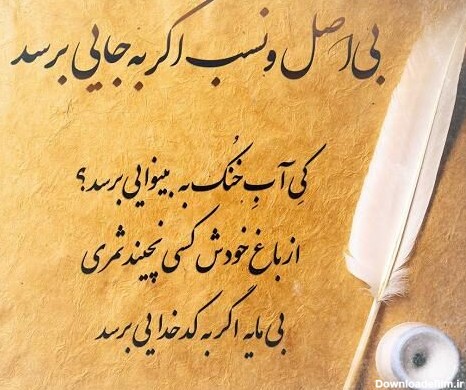 بی اصل و نسب اگر به جایی برسد
کِی آبِ خُنک به بینوایی برسد؟
از باغ خودش کسی نچیند ثمری
بی مایه اگر به کدخدایی برسد
Downloadfilm.ir